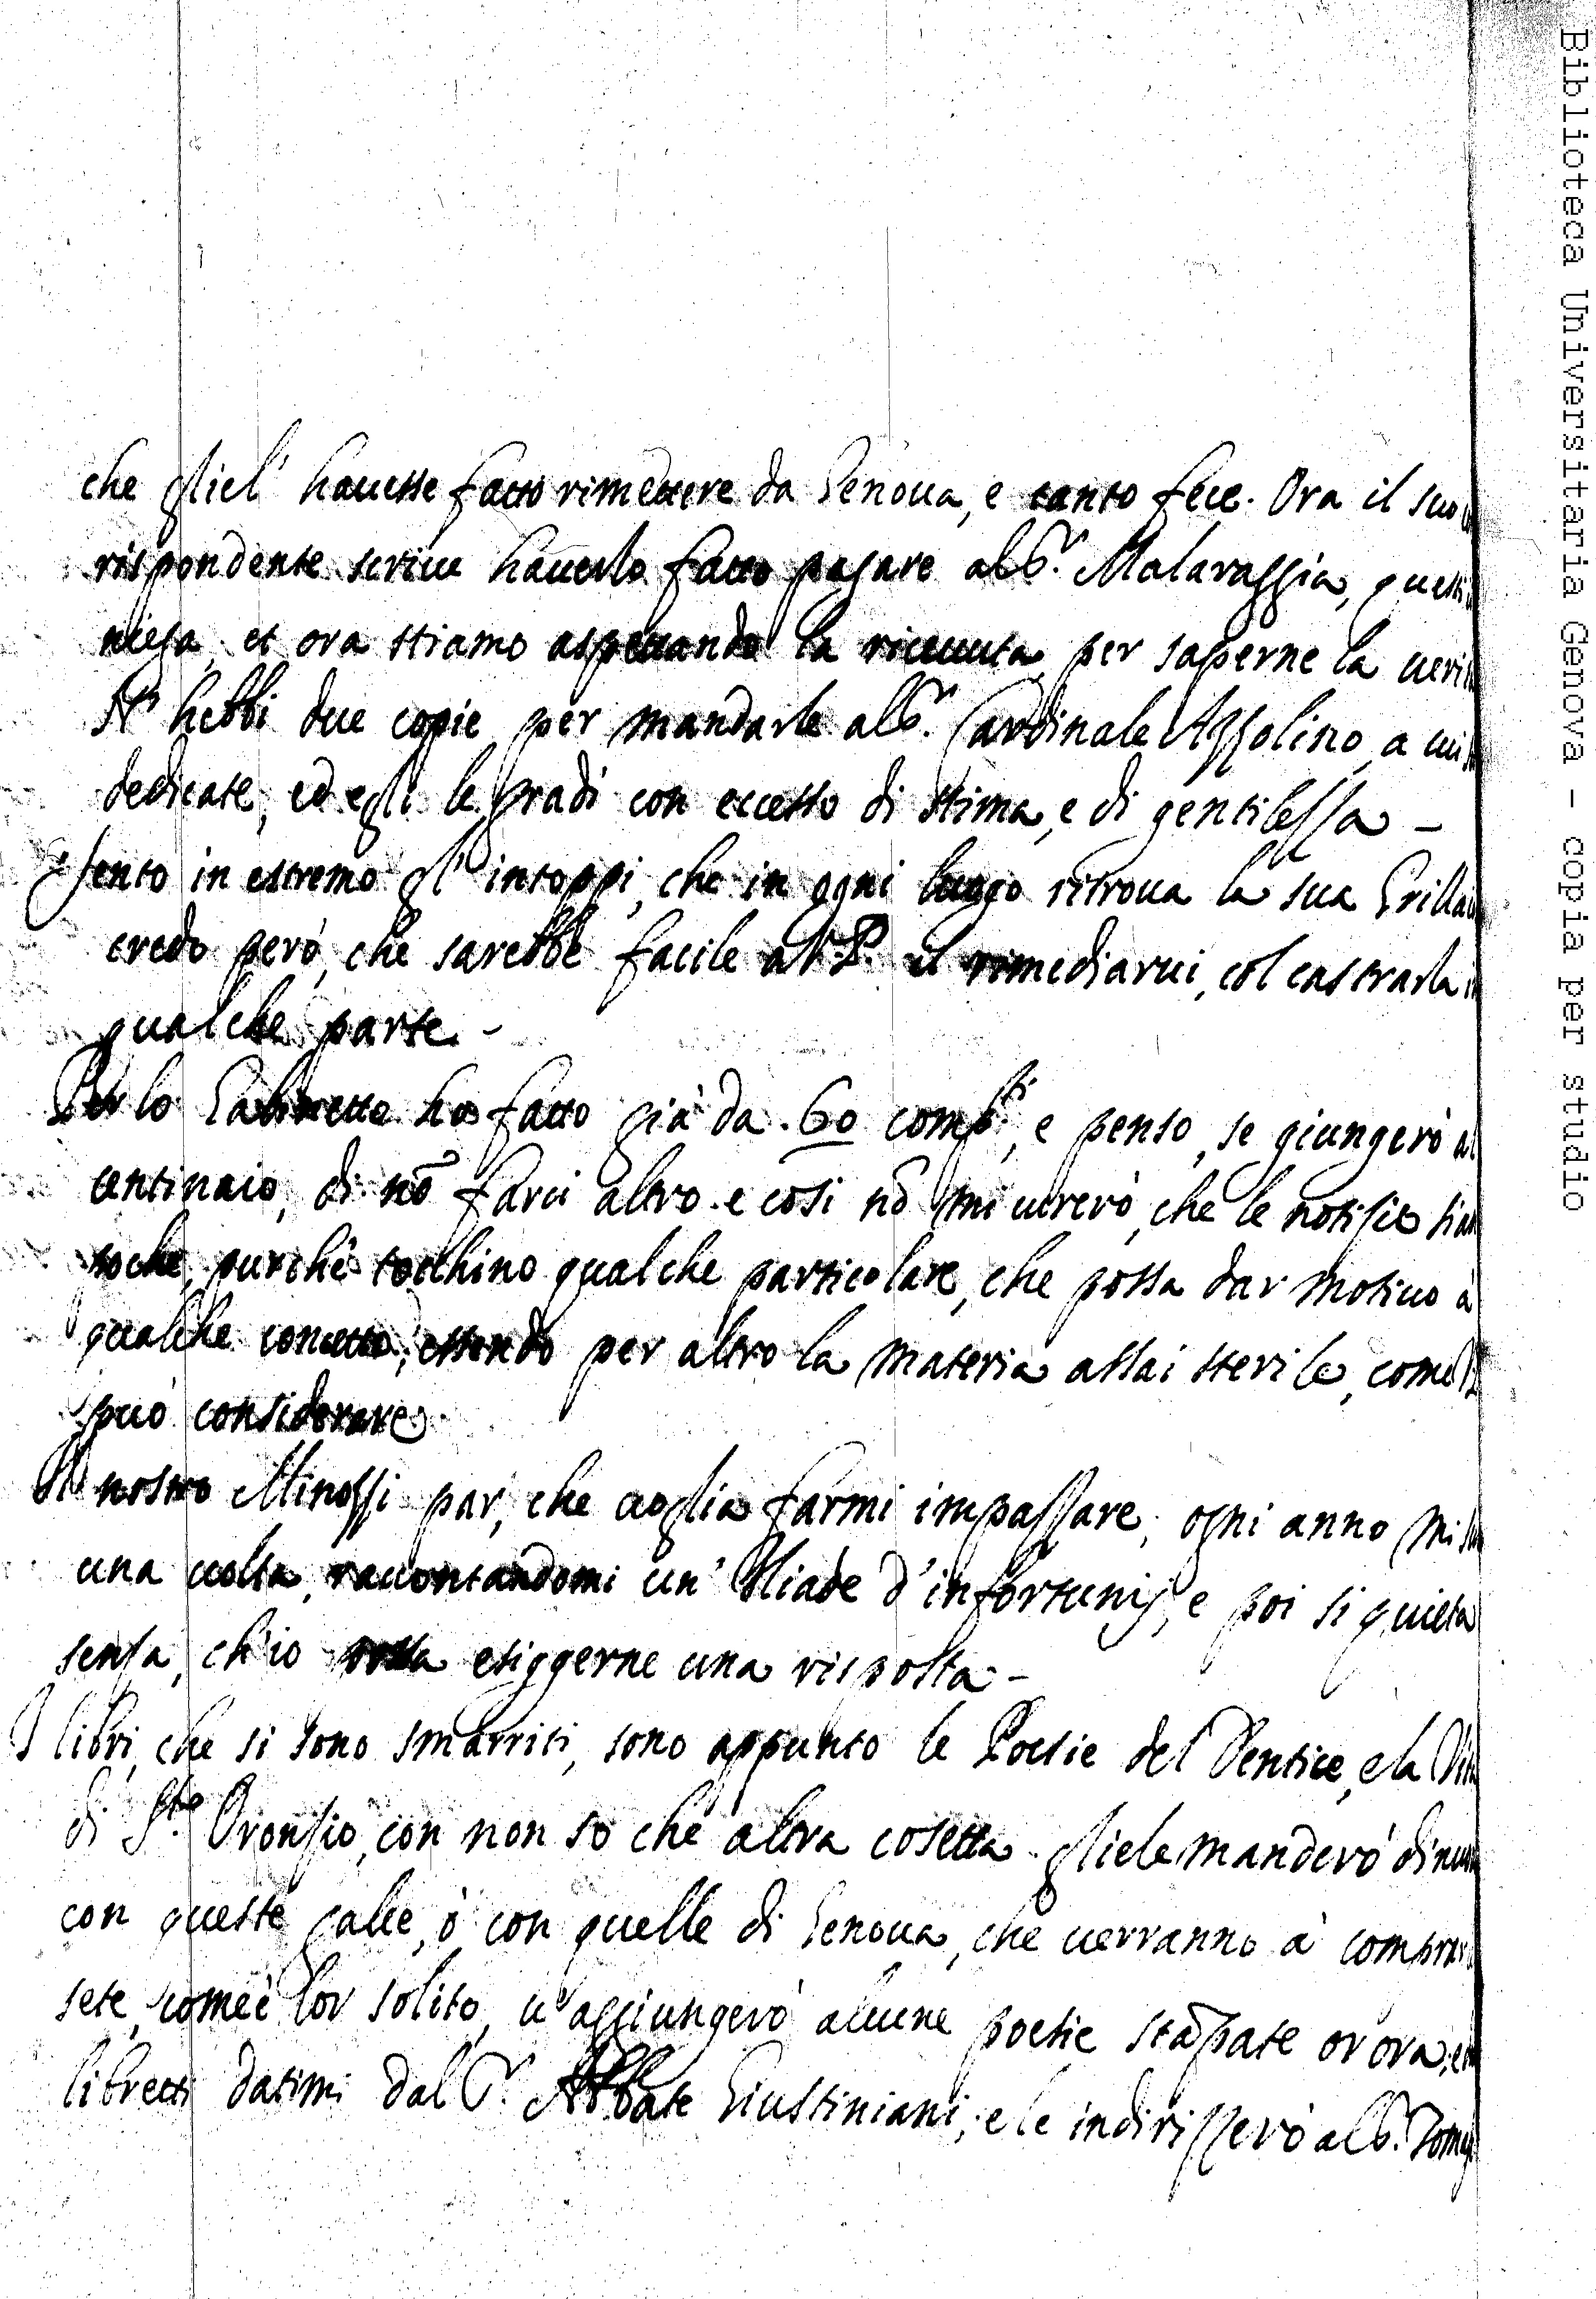 che gliel' hauesse fatto rimettere da Genoua, e tanto fece. Ora il suo
rispondente scriue hauerlo fatto pagare al S.r Malaraggia, questi
niega, et ora stiamo aspettando la riceuuta per saperne la ueri
N' hebbi due copie per mandarle al S.r Cardinale Azzolino, a cui
dedicate, ed egli le gradì con eccesso di stima, e di gentilezza –
Sento in estremo gl' intoppi, che in ogni luogo ritroua la sua Grilla
credo però, che sarebbe facile a V. P. il rimediarui, col castrarla
qualche parte. –
Per lo Gabinetto ho fatto già da .60 comp.ti, e penso, se giungerò al
centinaio, di nō farci altro. e così nō mi curerò, che le notizie sian
poche, purchè tocchino qualche particolare, che possa dar motiuo à
qualche concetto, essendo per altro la materia assai sterile, come
può considerare.
Il nostro Minozzi par, che uoglia farmi impazzare, ogni anno mi
una uolta, raccontandomi un' Iliade d'infortunij, e poi si quieta
senza, ch'io possa esiggerne una risposta –
I libri, che si sono smarriti, sono appunto le Poesie del Dentice, e la Vita
di S.to Oronzio, con non so che altra cosetta. gliele manderò di
con queste galee, ò con quelle di Genoua, che uerranno à comprar
sete, com'è lor solito, u' aggiungerò alcune poesie stāpate or ora, e
libretti datimi dal S.r Abbate Giustiniani, e le indirizzerò al S.r
Biblioteca Universitaria Genova - copia per studio